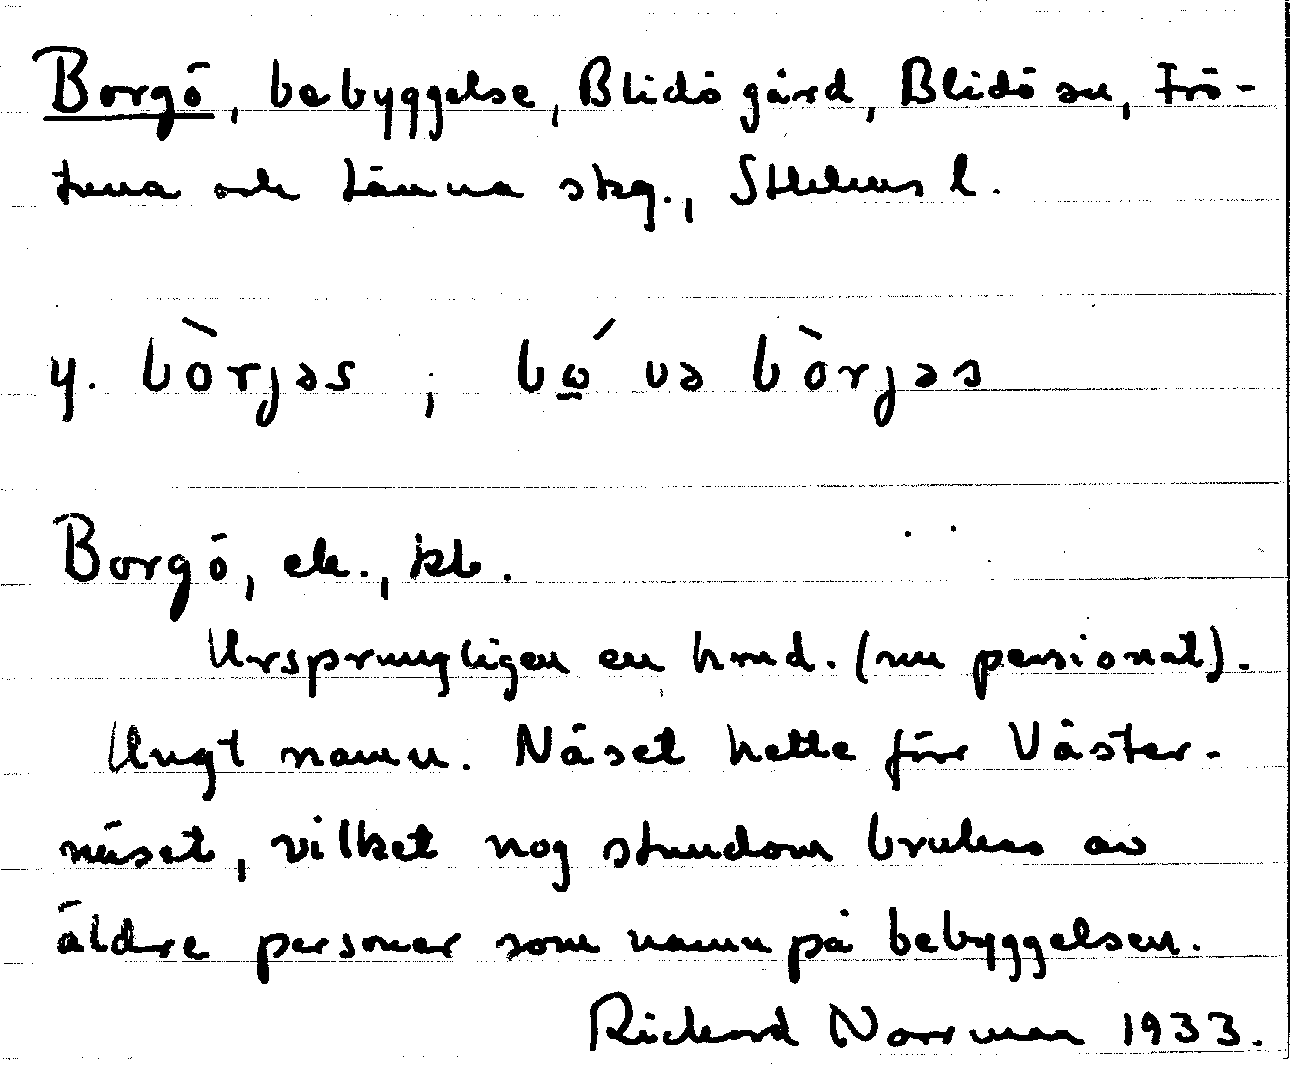 Borgö, bebyggelse, Blidö gård, Blidö sn, Frö-
tuna och Länna skg., Sthlms l.
y. bòrjas ; bó va bòrjas
Borgö, ek., kb.
Ursprungligen en hmd. (nu pensionat).
Ungt namn. Näset hette förr Väster-
näset, vilket nog stundom brukas av
äldre personer som namn på bebyggelsen.
Rickard Norrman 1933.